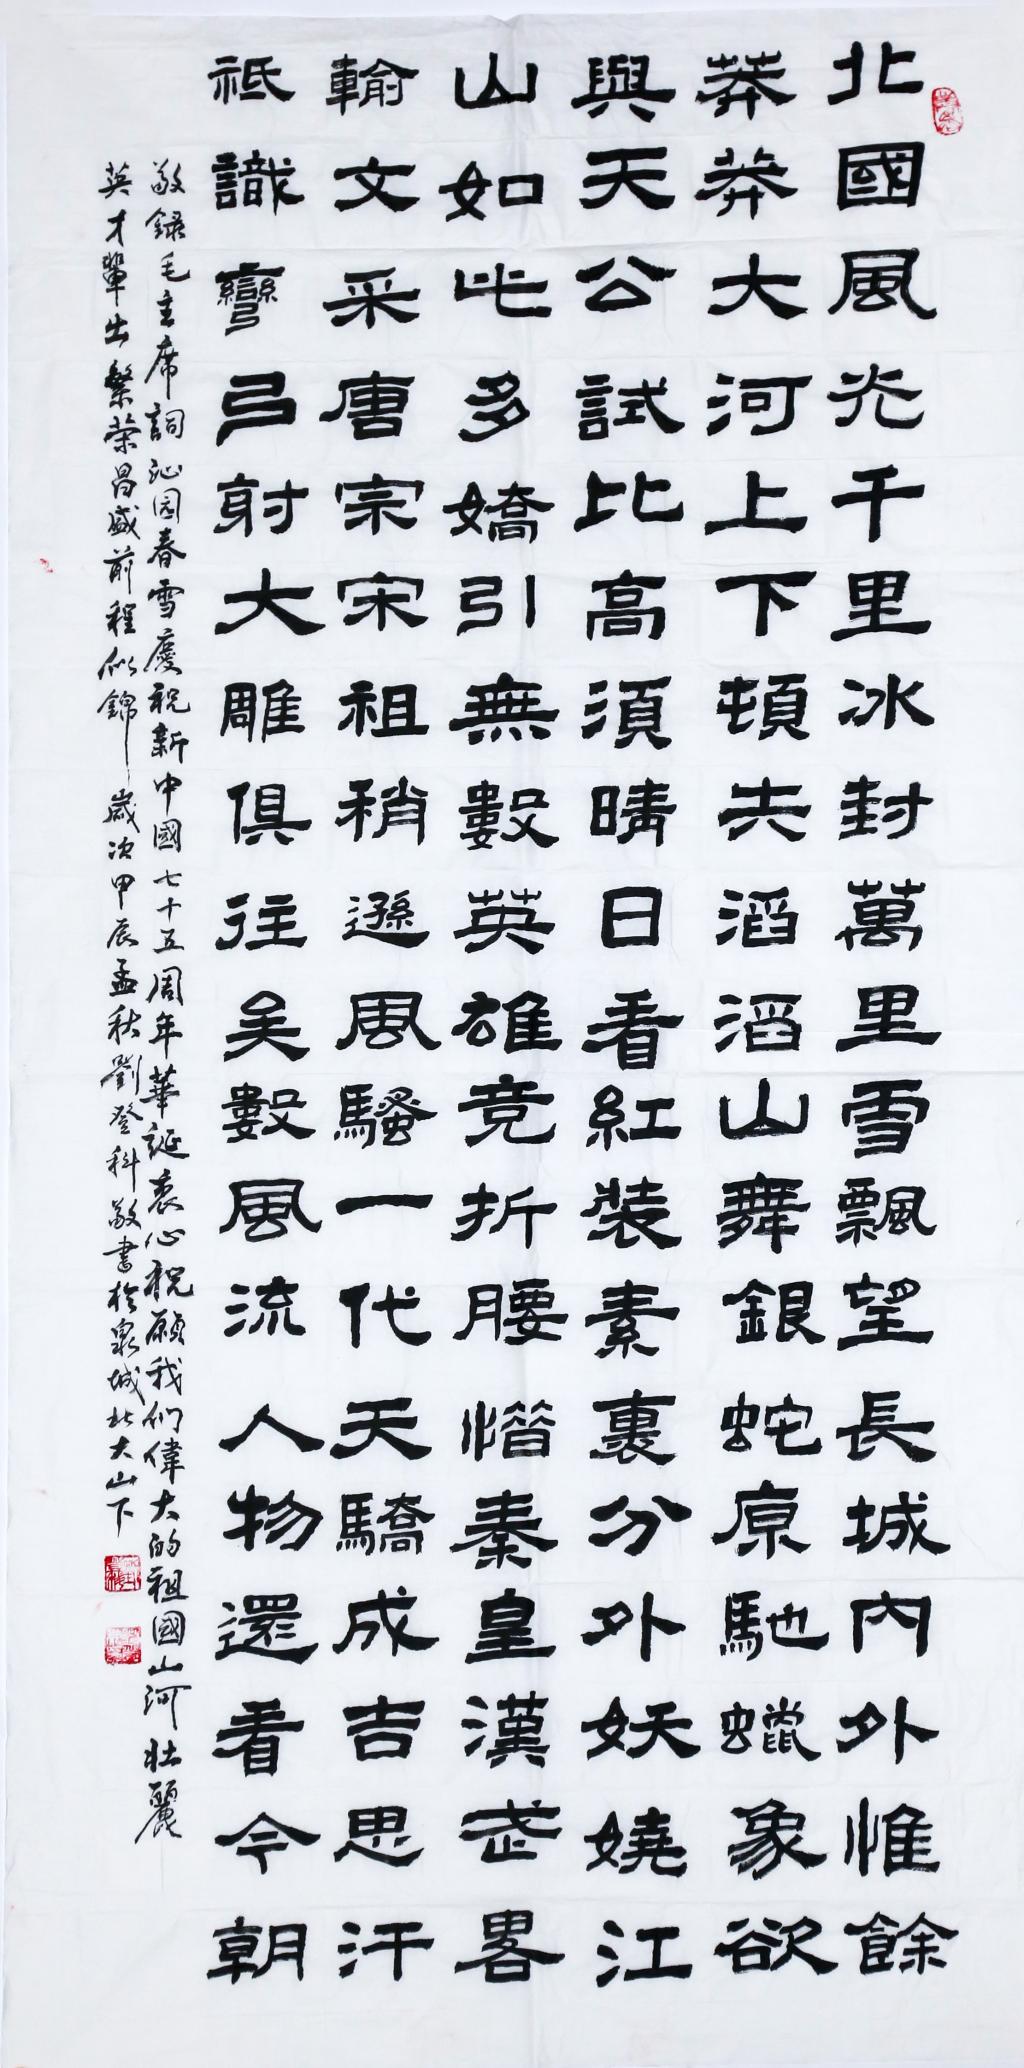 北國風光千里冰封萬里雪飄望長城內外惟餘
莽莽大河上下頓失滔滔山舞銀蛇原馳蠟象欲
與天公試比高須晴日看紅裝素裹分外妖嬈江
山如此多嬌引無數英雄競折腰惜秦皇漢武畧
輸文采唐宗宋祖稍遜風騷一代天驕成吉思汗
祗識彎弓射大雕俱往矣數風流人物還看今朝
敬錄毛主席詞沁园春雪慶祝新中國七十五周年華誕衷心祝願我们偉大的祖國山河壯麗
英才輩出繁榮昌盛前程似錦歲次甲辰孟秋劉登科敬書於泉城北大山下